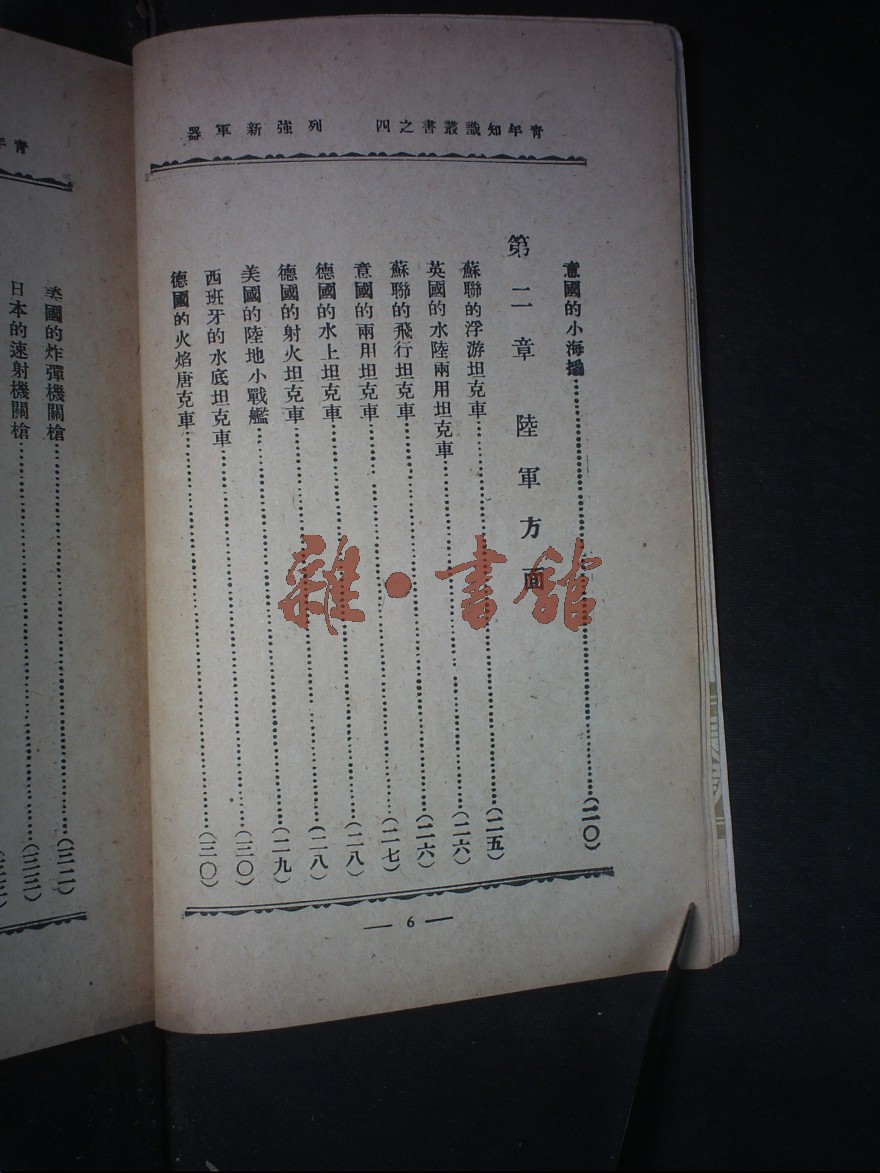 青年知識叢書之四　列強新軍器
意國的小海蝎……(二〇)
第二章　陸軍方面
蘇聯的浮游坦克車……(二五)
英國的水陸兩用坦克車……(二六)
蘇聯的飛行坦克車……(二六)
意國的兩用坦克車……(二七)
德國的水上坦克車……(二八)
德國的射火坦克車……(二八)
美國的陸地小戰艦……(二九)
西班牙的水底坦克車……(三〇)
德國的火焰唐克車……(三〇)
— 6 —
青年
美國的炸彈機關槍……(三二)
日本的速射機關槍……(三三)
雜·書館